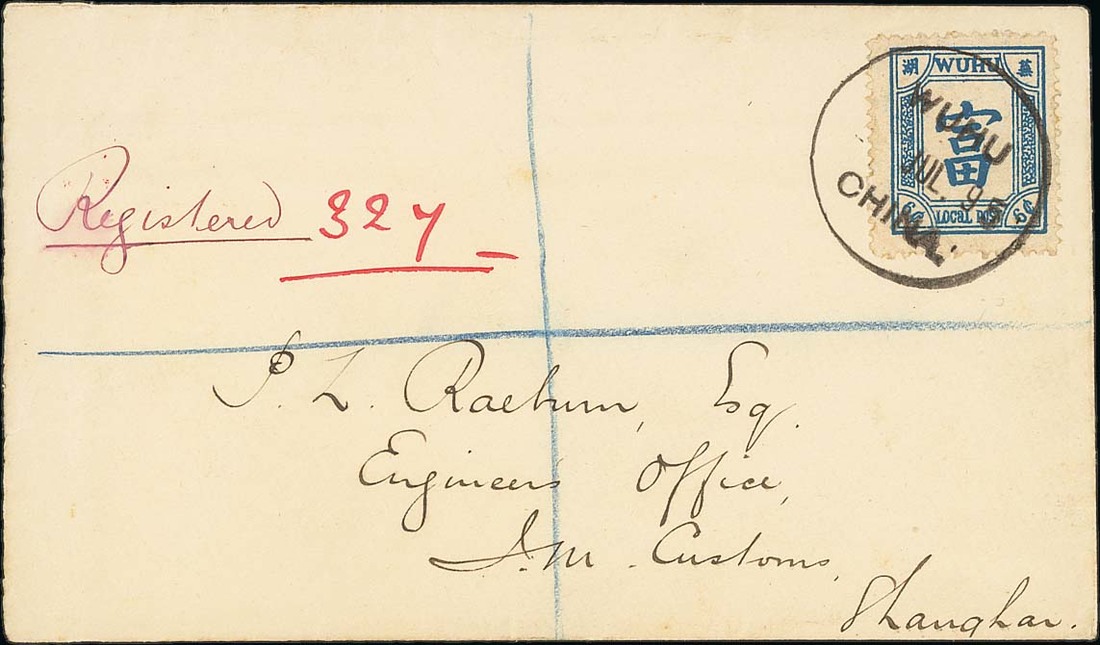 湖 WUHU 蕪
富
6¢ LOCAL POST 6¢
WUHU
JUL. 95
CHINA.
Registered 327
P. L. Raeburn, Esq.
Engineers Office,
I. M. Customs,
Shanghai.